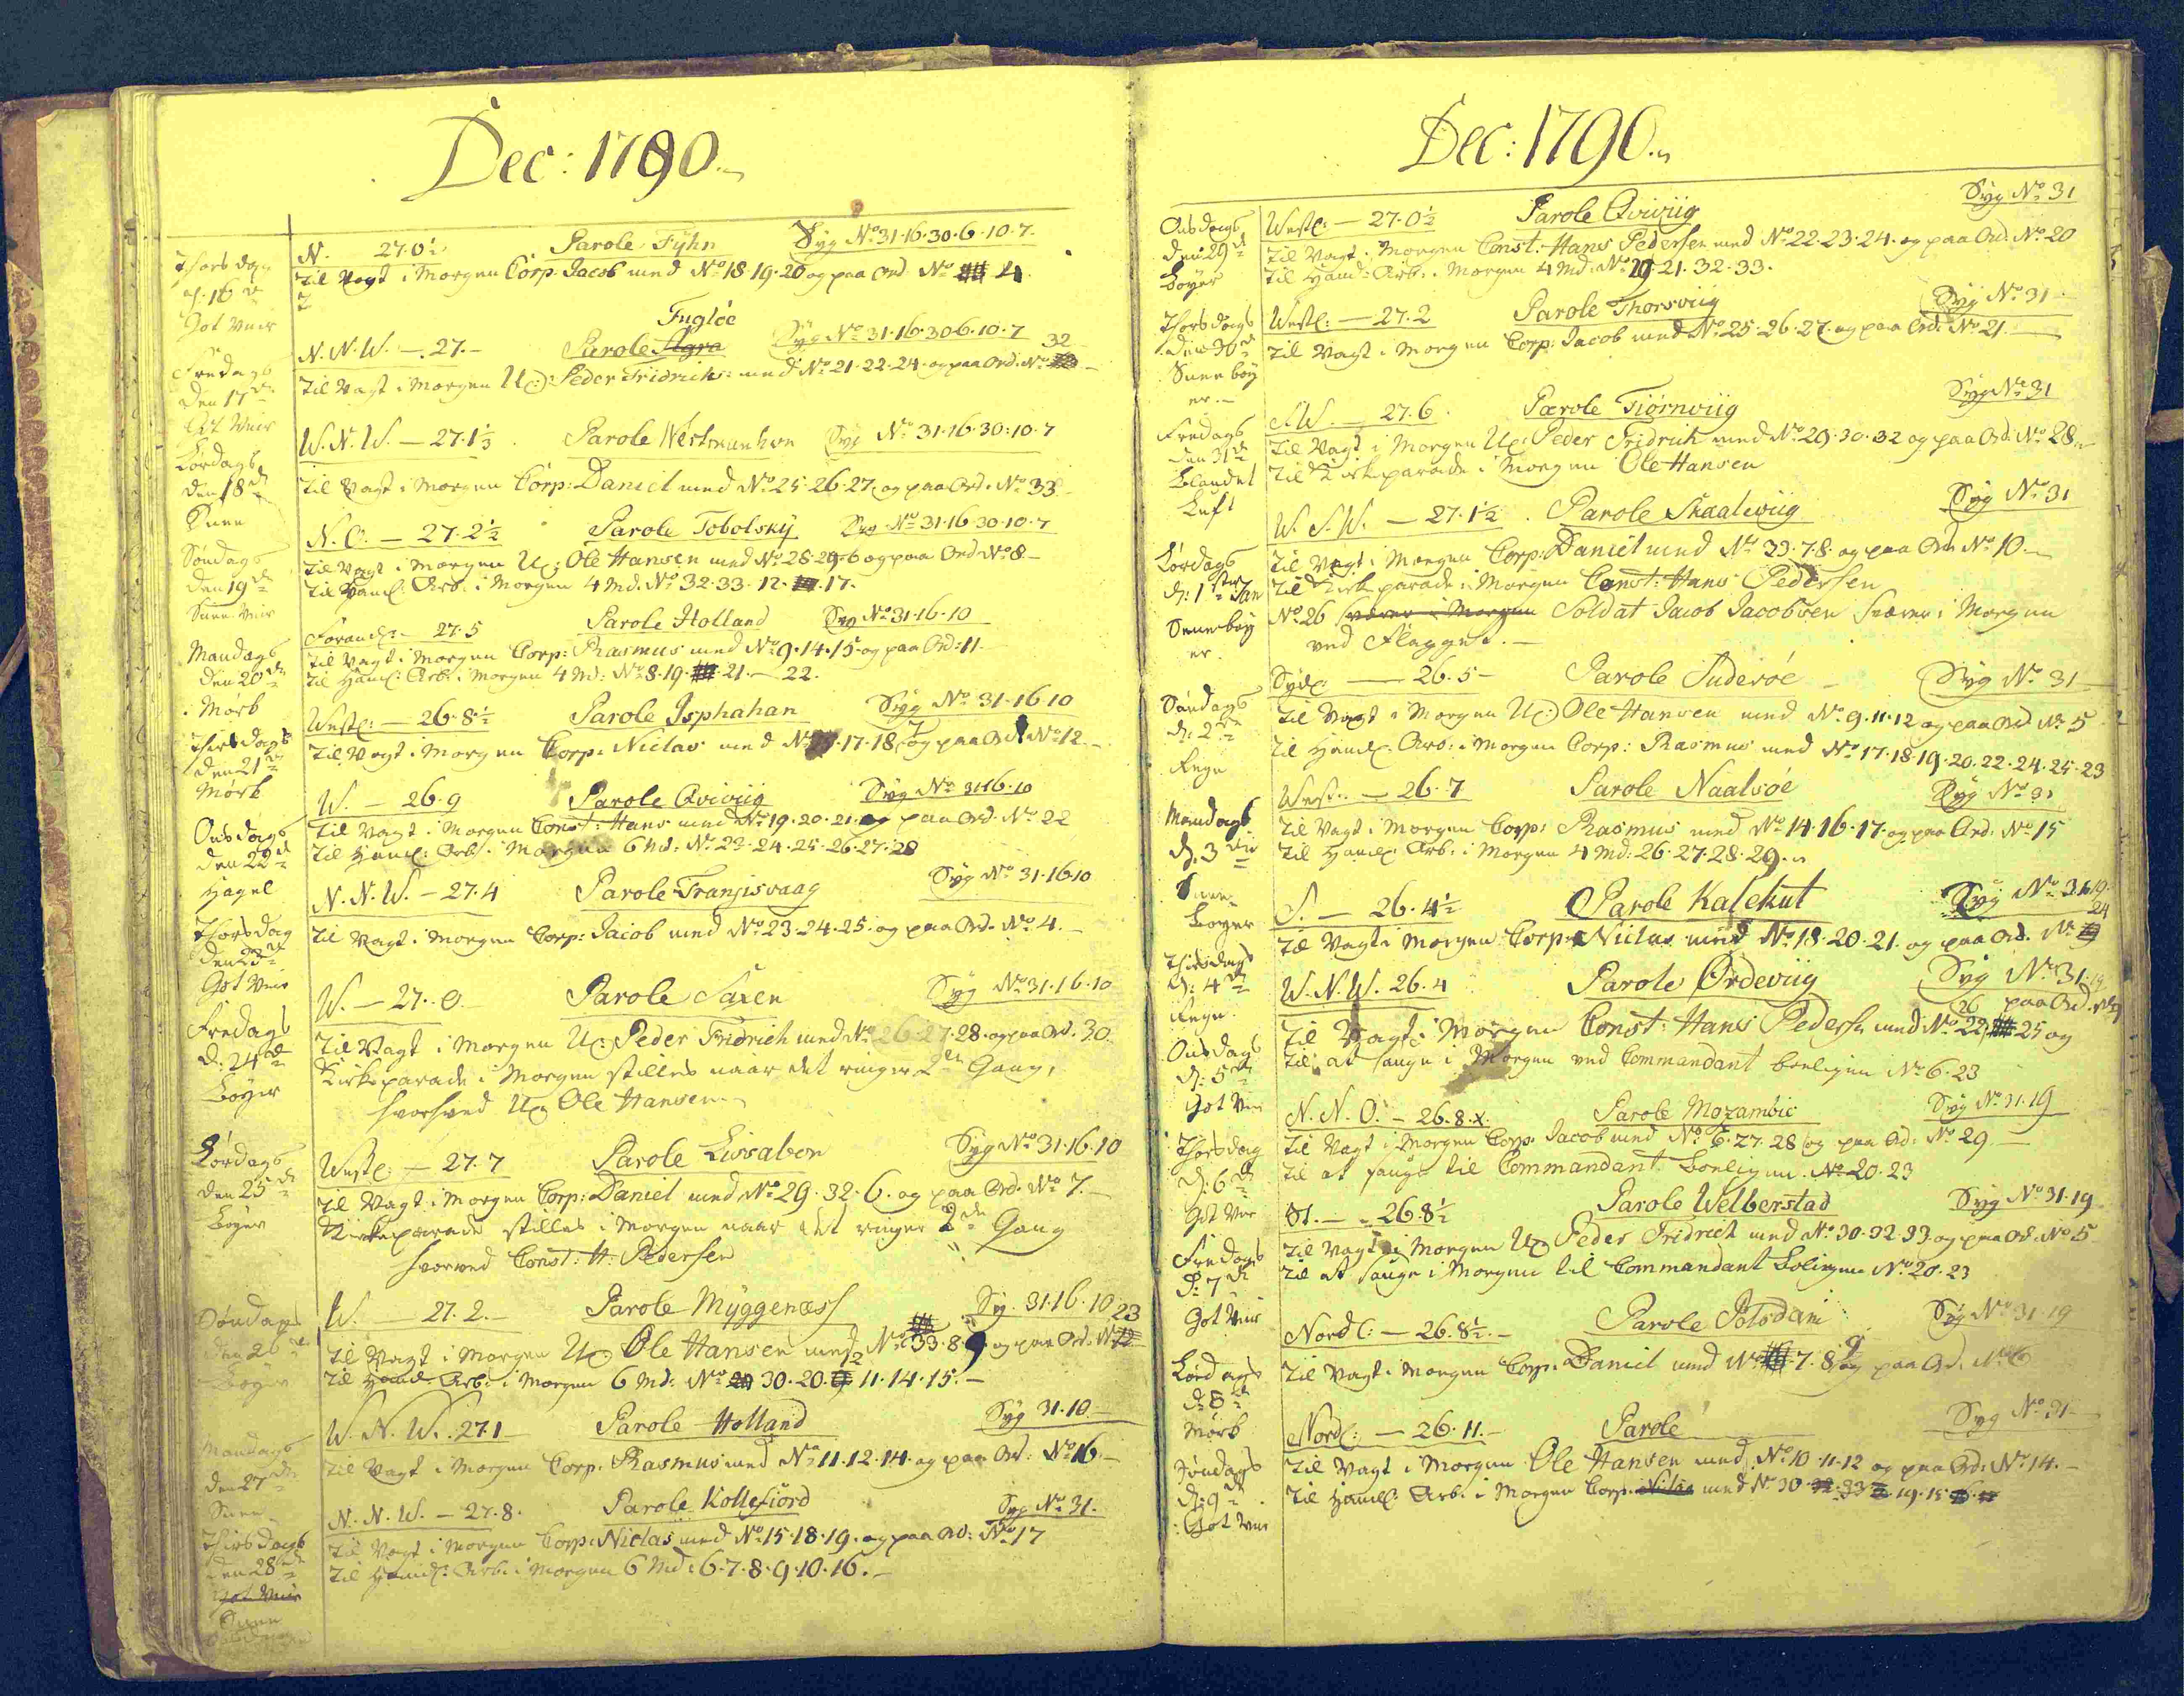 Dec: 1790.
Thorsdag
d. 16de
Got Veir
N. 27.0½ Parole Fyhn Syg No 31.16.30.6.10.7.
Til Vagt i Morgen Corp. Jacob med No 18.19.20 og paa Ord No 4.
Fredags
den 17de
Got Veir
Fugløe
N.N.W. — 27.— Parole Agra Syg No 31.16.30.6.10.7
32
Til Vagt i Morgen Uc: Peder Fridrich: med No 21.22.24. og paa Ord. No
Lørdags
den 18de
Snee
W.N.W. — 27.1⅓ Parole Westmanhavn Syg No 31.16.30.10.7
Til Vagt i Morgen Corp: Daniel med No 25.26.27. og paa Ord. No 33
Søndags
den 19de
Snee Veir
N.O. — 27.2½ Parole Tobolsky Syg No 31.16.30.10.7
Til Vagt i Morgen Uc: Ole Hansen med No 28.29.6 og paa Ord No 8—
Til Handl: Arb. i Morgen 4 Md. No 32.33.12.17.
Mandags
den 20de
Mørk
Forandl: — 27.5 Parole Holland Syg No 31.16.10
Til Vagt i Morgen Corp: Rasmus med No 9.14.15 og paa Ord: 11.—
Til Handl: Arb. i Morgen 4 Md: No 8.19.21.—22.
Thirsdags
den 21de
Mørk
Westl: — 26.8½ Parole Isphahan Syg No 31.16.10
Til Vagt i Morgen Corp. Niclas med No 17.18.7 og paa Ord No 12.—
Onsdags
den 22de
Hagel
W. — 26.9 Parole Qviviig Syg No 31.16.10
Til Vagt i Morgen Const: Hans med No 19.20.21. og paa Ord. No 22
Til Handl: Arb. i Morgen 6 Md: No 23.24.25.26.27.28
Thorsdag
den 23de
Got Veir
N.N.W. — 27.4 Parole Franjisvaag Syg No 31.16.10
Til Vagt i Morgen Corp: Jacob med No 23.24.25. og paa Ord. No 4.—
Fredags
d. 24de
Bøyer
W. — 27.0. Parole Saxen Syg No 31.16.10
Til Vagt i Morgen Uc: Peder Fridrich med No 26.27.28. og paa Ord. 30.
Kirkeparade i Morgen stilles naar det ringer 2den Gang,
hvorved Uc: Ole Hansen
Lørdags
den 25de
Bøyer
Westl: — 27.7 Parole Lissabon Syg No 31.16.10
Til Vagt i Morgen Corp: Daniel med No 29.32.6. og paa Ord. No 7.—
Kirkeparade stilles i Morgen naar det ringer 2den Gang
hvorved Const: H: Pedersen
Søndags
den 26de
Bøyer
W. — 27.2.— Parole Myggenæss Syg. 31.16.10
23
Til Vagt i Morgen Uc: Ole Hansen med No 33.8.9 og paa Ord. No
Til Handl. Arb: i Morgen 6 Md: No 30.20. 11.14.15.—
Mandags
den 27de
Snee
W.N.W. 27.1 Parole Holland Syg 31.10.—
Til Vagt i Morgen Corp. Rasmus med No 11.12.14. og paa Ord: No 16.—
Thirsdags
den 28de
Got Veir
Snee
N.N.W. — 27.8. Parole Kollefiord Syg No 31.
Til Vagt i Morgen Corp: Niclas med No 15.18.19. og paa Ord: No 17
Til Handl: Arb. i Morgen 6 Md: 6.7.8.9.10.16.—
Dec: 1790.
Onsdags
den 29de
Bøyer
Westl: — 27.0½ Parole Qviviig Syg No 31
Til Vagt i Morgen Const. Hans Pedersen med No 22.23.24. og paa Ord. No 20
Til Handl: Arb. i Morgen 4 Md: No 19.21.32.33.
Thorsdags
den 30de
Snee bøy
er.—
Westl: — 27.2 Parole Thorsviig Syg No 31
Til Vagt i Morgen Corp: Jacob med No 25.26.27. og paa Ord: No 21.
Fredags
den 31de
Blandet
Luft
S.W. — 27.6. Parole Tiørnviig Syg No 31
Til Vagt i Morgen Uc: Peder Fridrich med No 29.30.32 og paa Ord: No 28.
Til Kirkeparade i Morgen Ole Hansen
Lørdags
d: 1ste Jan
Sneebøy
er.
W.S.W. — 27.1½. Parole Skaaleviig Syg No 31
Til Vagt i Morgen Corp: Daniel med No 33.7.8. og paa Ord No 10.
Til Kirkparade i Morgen Const: Hans Pedersen
No 26 sværer i Morgen Soldat Jacob Jacobsen sværer i Morgen
ved Flagget.—
Søndags
d: 2den
Regn
Sydl: — 26.5— Parole Suderøe Syg No 31
Til Vagt i Morgen Uc: Ole Hansen med No 9.11.12 og paa Ord No 5
Til Handl: Arb: i Morgen Corp: Rasmus med No 17.18.19.20.22.24.25.23
Mandags
d. 3die
Snee
Bøyer
West: — 26.7 Parole Naalsøe Syg No 31
Til Vagt i Morgen Corp: Rasmus med No 14.16.17. og paa Ord: No 15
Til Handl: Arb: i Morgen 4 Md: 26.27.28.29.
Thirsdags
d: 4de
Regn.
S. — 26.4½ Parole Kalekut Syg No 31.19
24
Til Vagt i Morgen Corp: Niclas med No 18.20.21. og paa Ord. No
Onsdags
d: 5te
Got Veir
W.N.W. 26.4 Parole Ordeviig Syg No 31.19
26 paa Ord.
Til Vagt i Morgen Const: Hans Pedersen med No 22 25 og
Til at sauge i Morgen ved Commandant boeligen No 6.23
Thorsdag
d: 6te
Got Veir
N.N.O. — 26.8. Parole Mozambic Syg No 31.19
Til Vagt i Morgen Corp. Jacob med No 6.27.28 og paa Ord: No 29.—
Til at sauge til Commandant Boeligen. No 20.23
Fredags
d: 7de
Got Veir
Ost.— 26.8½ Parole Welberstad Syg No 31.19.
Til Vagt i Morgen Uc: Peder Fridrich med No 30.32.33 og paa Ord. No 5
Til at sauge i Morgen til Commandant Boligen No 20.23
Lørdags
d: 8de
Mørk
Nordl: — 26.8½.— Parole Potsdam Syg No 31.19
Til Vagt i Morgen Corp: Daniel med No 7.8.9 og paa Ord. No 6
Søndags
d: 9de
Got Veir
Nordl: — 26.11.— Parole Syg No 31—
Til Vagt i Morgen Ole Hansen med No 10.11.12 og paa Ord: No 14.—
Til Handl: Arb. i Morgen Corp. Niclas med No 30.32.33 19.15